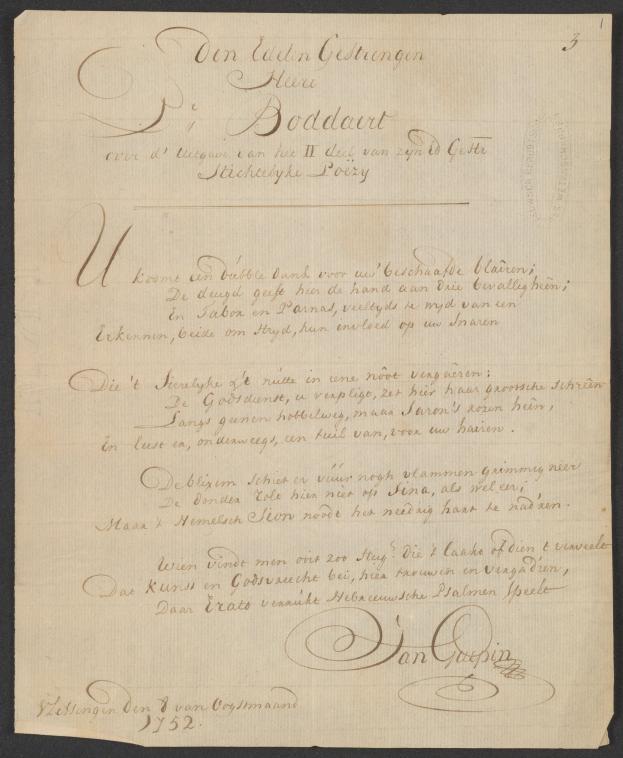 3
Den Edelen Gestrengen
Heere
Boddaert
over d' uitgave van het II deel van zyn Ed Gestr
Stichtelyke Poëzy
U koomt een dubble dank voor uw' beschaafde blaêren;
De deugd geeft hier de hand aan drie bevalligheên;
En Tabor en Parnas, veeltyds te wyd van een
Erkennen, beide om stryd, hun invloed op uw snaren
Die 't Sierelyke &'t nutte in eene nôot vergaêren:
De Godsdienst, u verpligt, zet hier haar grootsche schreên
Langs geenen hobbelweg, maar Saron's rozen heên,
En leest er, onderweegs, een tuil van, voor uw hairen.
De blixem schiet er vuur nogh vlammen grimmig neer
De donder role hier niet op Sina, als wel eer;
Maar 't Hemelsch Sion noodt het needrig hart te nad'ren.
Wien vindt men ooit zoo stug? die 't laake of dien 't verveelt
Dat kunst en Godsvrucht beî, hier trouwen en vergad'ren,
Daar Erato verrukt Hebreeuwsche Psalmen speelt
Jan
Vlissingen den 8 van Oogstmaand
1752.